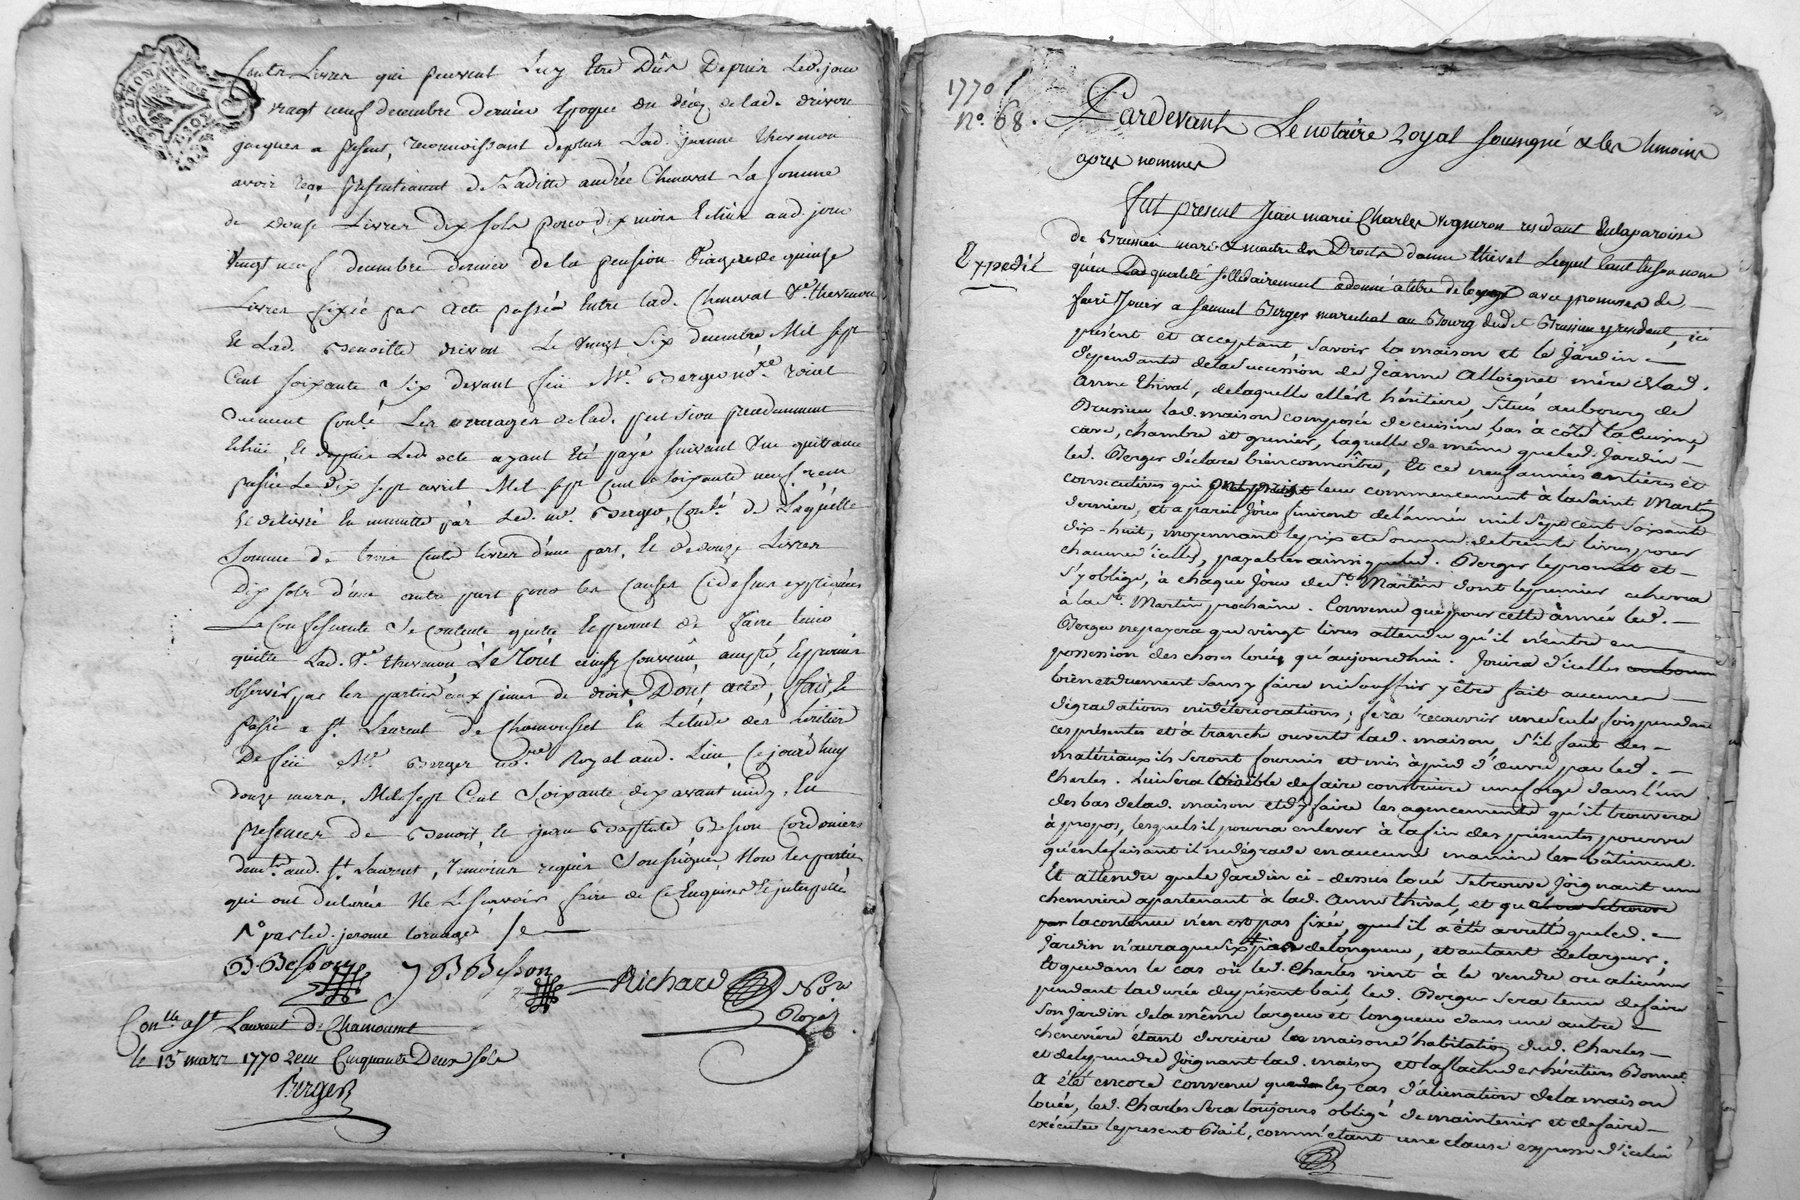 Cents Livres qui peuvent Luy Etre Dûs Depuis Led. jour
vingt neuf decembre dernier Epoque du décez de lad. drivon
jacques a present, reconnoissant deplus Lad. jeanne thevenon
avoir reçu presentement de Laditte andrée Chenevat La somme
de douze Livres dix sols pour dix mois Echûs aud. jour
vingt neuf decembre dernier de la pension viagere de quinze
Livres fixée par acte passé Entre lad. Chenevat Ve. thevenon
Et Lad. Benoitte drivon Le vingt Six decembre Mil sept
Cent soixante Six devant feu Me. Berger nore. royal
duement Conlé Les arrerages de lad. pension precedemment
Echus Et depuis Led. acte ayant Eté payé suivant une quittance
passée Le dix sept avril Mil sept Cent soixante neuf reçue
Et delivré En minutte par Led. me. Berger, Conlé. de Laquelle
Somme de trois Cents livres d'une part, Et de douze Livres
Dix sols d'une autre part pour les Causes Cidessus expliquées
La Confessante Se contente quitte Et promet de faire tenir
quitte Lad. Ve. thevenon, Le Tout ainsy Convenû accepté, Et promis
observer par les parties aux peines de droit, Dont acte, fait, Et
passé a St. Laurent de Chamousset En Letude des heritiers
De feu Me. Berger nore. Royal aud. Lieu, Cejourd'huy
douze mars, Mil Sept Cent Soixante dix avant midy, En
presences de Benoit, Et jean Baptiste Besson Cordoniers
demts. aud. St. Laurent, Temoins requis Soussignés Non les parties
qui ont declarées Ne Le Sçavoir faire de Ce Enquises Et interpellées
B Besson J B Besson Richard Nore
Royal
Conlle a St. Laurent de Chamousset
le 13 mars 1770 Reçu Cinquante Deux sols
Berger
1770
No. 68.
Pardevant Le notaire Royal soussigné & les temoins
apres nommés
Expedié
fut present Jean marie Charles vigneron residant En la paroisse
de Brussieu mari & maitre des Droits danne thival Lequel tant En son nom
qu'en La qualité solidairement a donné a titre de loyer avec promesse de
faire Jouir a Samuel Berger marechal au Bourg dudit Brussieu y residant, ici
présent et acceptant, Savoir la maison et le Jardin
dépendants de la succession de Jeanne Alloignet mère de lad.
Anne thival, de laquelle elle est héritiere, situés au bourg de
Brussieu lad. maison composée de cuisine, bas à côté la Cuisine,
cave, chambre et grenier, laquelle de même que led. Jardin
led. Berger déclare bien connoître, Et ce neuf années entières et
consécutives qui ont pris leur commencement à la Saint Martin
dernière, et a pareil Jour finiront de l'année mil sept cent soixante
dix-huit, moyennant le prix et somme de trente livres, pour
chacune d'icelles, payables ainsi que led. Berger le promet et
s'y oblige, à chaque Jour de St. Martin dont le premier écherra
à la St. Martin prochaine. Convenu que pour cette année led.
Berger ne payera que vingt livres attendu qu'il n'entre en
possession des choses louées qu'aujourdhui. Jouira d'icelles
bien et duement sans y faire ni souffrir y être fait aucunes
dégradations ni détériorations; fera recouvrir une seule fois pendant
ces présentes et à tranche ouverte lad. maison, s'il faut des
matériaux ils seront fournis et mis à pied d'œuvre par led.
Charles. Lui sera loisible de faire construire une forge dans l'un
des bas de lad. maison et d'y faire les agencements qu'il trouvera
à propos, lesquels il pourra enlever à la fin des présentes pourvu
qu'en le faisant il ne dégrade en aucune manière les bâtiments.
Et attendu que le Jardin ci-dessus loué se trouve joignant une
chenevière appartenant à lad. Anne thival, et que
par la contenue n'en est pas fixée, qu'il a été arretté que led.
Jardin n'aura que six pas de longueur, et autant de largeur;
Et que dans le cas où led. Charles vint à le vendre ou aliéner
pendant la durée du présent bail, led. Berger sera tenu de faire
son Jardin de la même largeur et longueur dans une autre
chenevière étant derrière la maison d'habitation dud. Charles
A été encore convenu que En cas d'aliénation de la maison
louée, led. Charles sera toujours obligé de maintenir et de faire
exécuter le présent Bail, comm'étant une clause expresse d'icelui